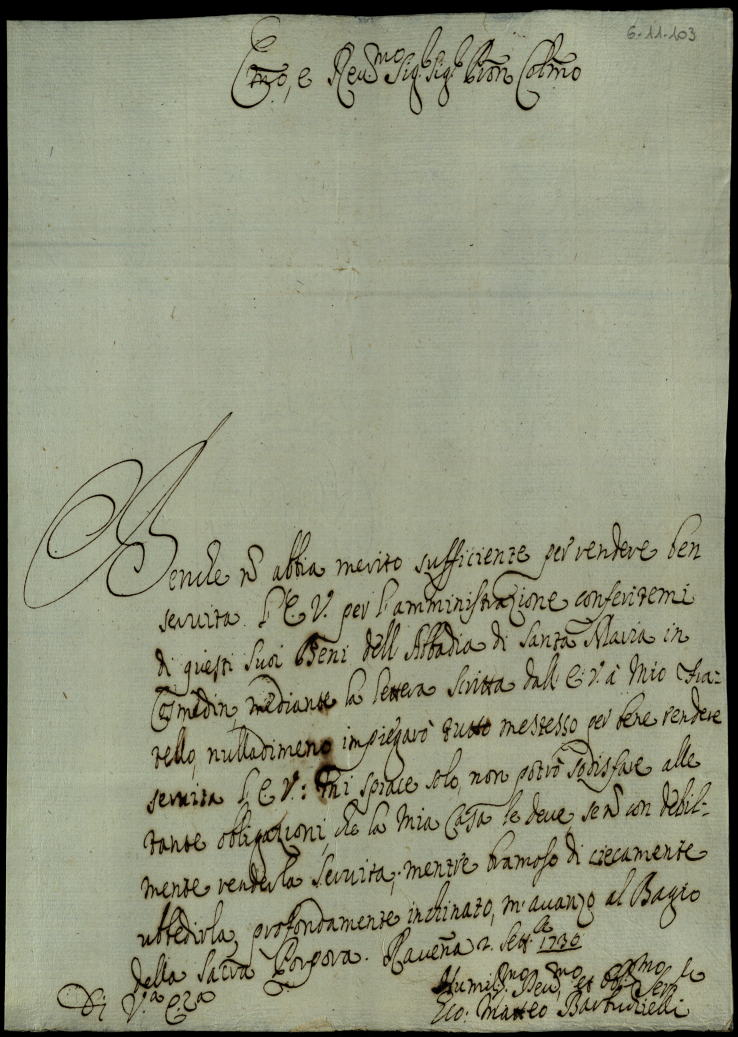 6-11-103
Emo, e Reumo Sig.r Sig.r Pron Colmo
Benche nõ abbia merito sufficiente per rendere ben
seruita l'E. V. per l'amministrazione conferitemi
di questi suoi Beni dell'Abbadia di Santa Maria in
Cosmedin, mediante la lettera scritta dall'E. V. à mio Fra=
tello, nulladimeno impiegarò tutto mestesso per bene rendere
seruita l'E V: mi spiace solo, non potrò sodisfare alle
tante obligazioni, che la mia Casa le deue, se nõ con debil=
mente renderla seruita; mentre bramoso di ciecamente
ubbedirla, profondamente inchinato, m'auanzo al Bagio
della Sacra Porpora. Rauenã 2. Sett. 1730
Di V.a E.za
Humilmo Deumo et Obbmo Ser.e
Gio. Matteo